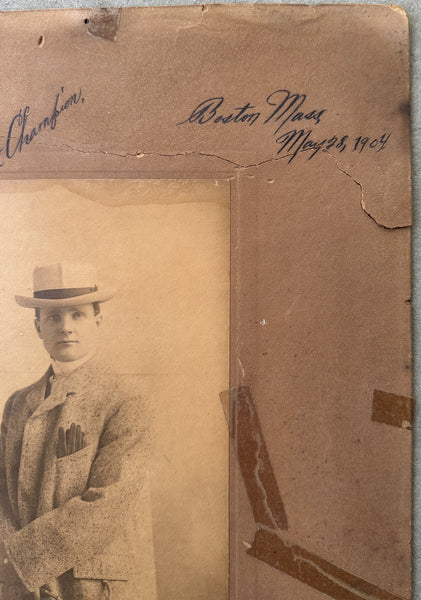 Champion,
Boston Mass,
May 28, 1904